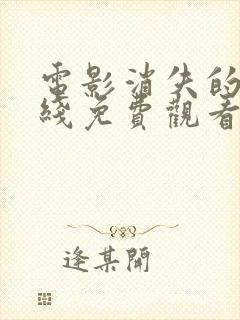 電影消失的
綫免費觀看
逢某開